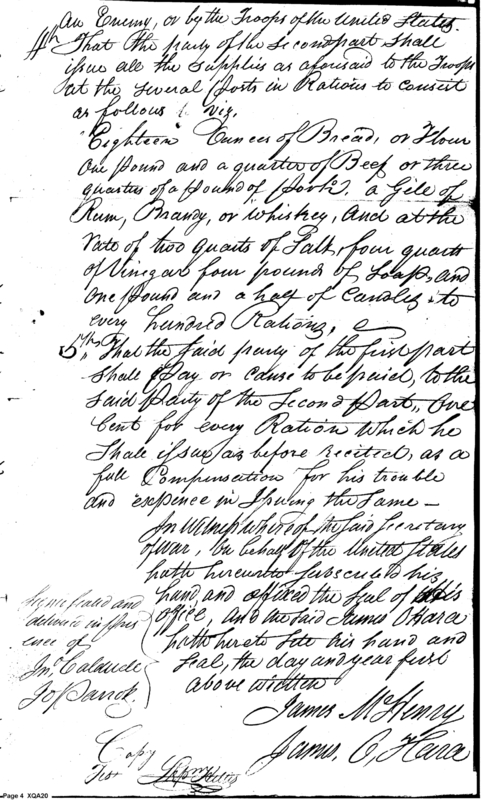 An Enemy, or by the Troops of the United States.
4th That the party of the second part shall
issue all the Supplies as aforesaid to the Troops
at the several Posts in Rations to consist
as follows viz.
Eighteen Ounces of Bread, or Flour
One pound and a quarter of Beef or three
quarters of a pound of Pork. a Gill of
Rum, Brandy, or Whiskey, And at the
rate of two quarts of Salt, four quarts
of Vinegar four pounds of Soap, and
One pound and a half of Candles to
every hundred Rations,
5th,, That the said party of the first part
shall Pay or cause to be paid, to the
said Party of the Second Part,, One
Cent for every Ration which he
shall issue as before recited, as a
full Compensation for his trouble
and expence in Issuing the Same —
In Witness whereof the Said Secretary
of War, On behalf Of the United States
hath hereunto subscribed his
hand and affixed the Seal of his
Office, And the said James OHara
hath hereto Sett his hand and
Seal, the day and year first
above written
Signed sealed and
delivered in Pres
ence of
Jno
Jo
James McHenry
James OHara
Copy
Page 4 XQA20